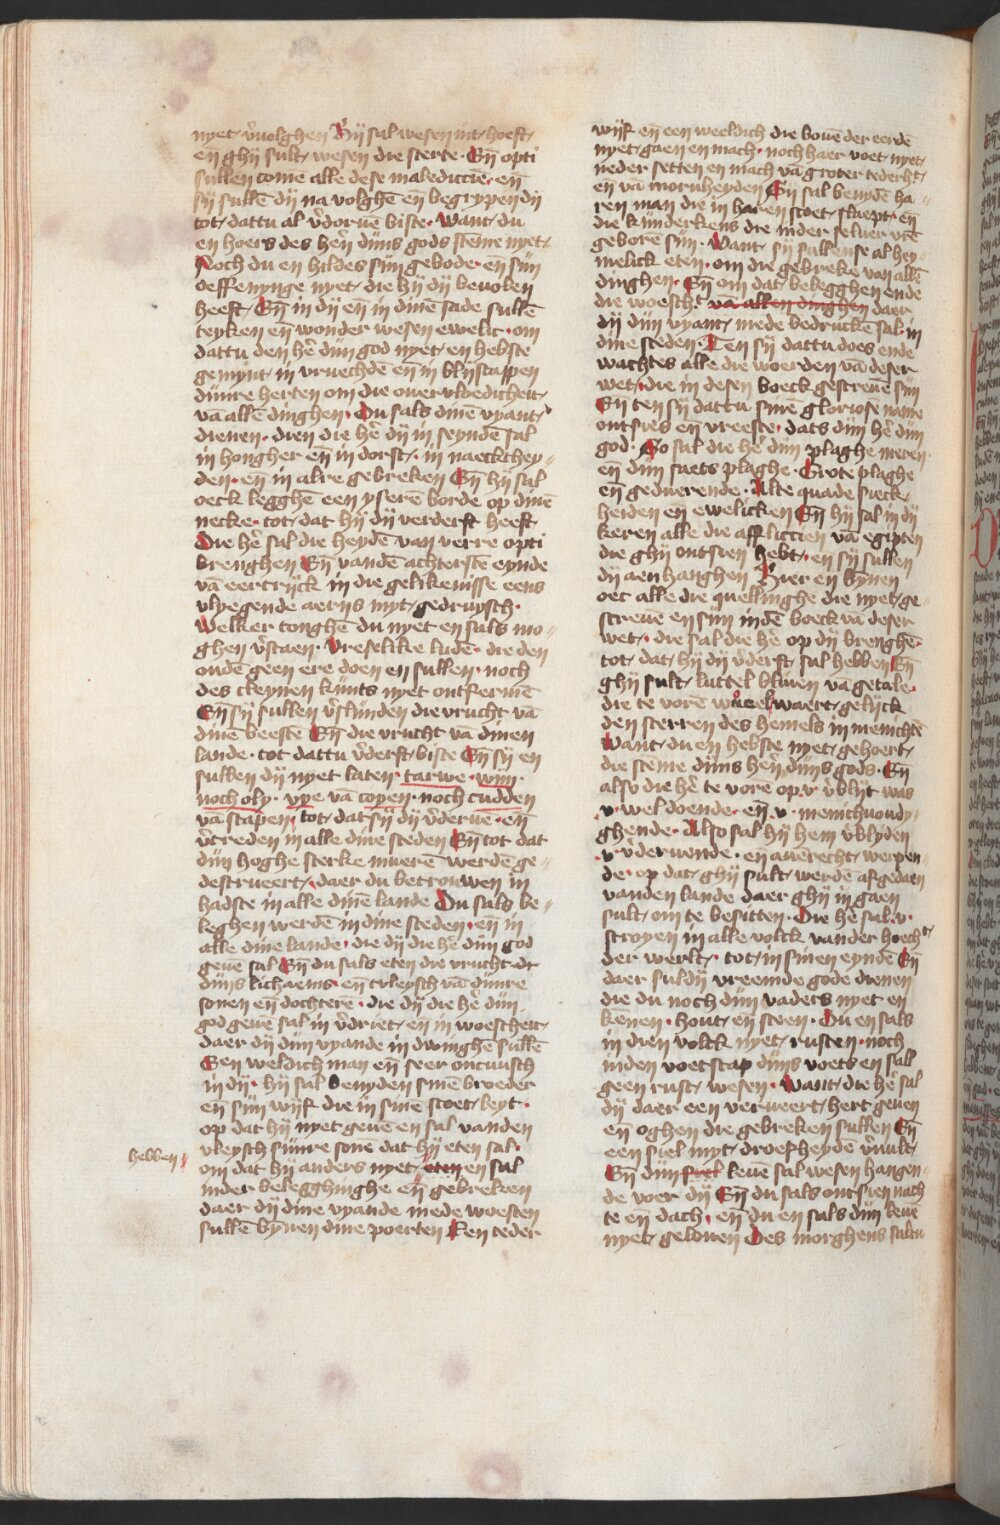 nyet v̉uolghen Hij sal wesen int hoeft
en̄ ghij sult wesen die sterte. En̄ opti
sullen come alle dese malediccie. en̄
sij sullē dij na volghē en̄ begrypen dij
tot dattu al v̉doruē biste. Want du
en hoers des hēn dijns gods stēme nyet
Noch du en hildes sijn gebode. en̄ sijn
oeffenynge nyet die hij dij beuolen
heeft. En̄ in dij en̄ in dinē sade sullē
teyken en̄ wonder wesen ewelic. om
dattu den hē dijn god nyet en hebste
gemynt in vruechdē en̄ in blijscappen
dijnre herten om die ouervloedicheit
vā allē dinghen. Du sals dinē vyant
dienen. dien die hē dij in seyndē sal
in hongher en̄ in dorst. in naeckthey
den. en̄ in alre gebreken En̄ hij sal
oeck legghē een yserē borde op dinē
necke. tot dat hij dij verderft heeft
Die hē sal die heydē van verre opti
brenghen En̄ vandē achterstē eynde
vā eertrijck in die gelikenisse eens
vlyegende aerns myt gedruysch.
Welker tonghē du nyet en sals mo
ghen v̉staen. vreselike ludē. die den
oudē geen ere doen en sullen. noch
des cleynen kijnts nyet ontfermē
En̄ sij sullen v̉slinden die vrucht vā
dinē beestē En̄ die vrucht vā dinen
lande. tot dattu v̉derft biste En̄ sij en
sullen dij nyet laten. tarwe. wijn.
noch oly. vye vā coyen. noch cudden
vā scapen. tot dat sij dij v̉deruē. en̄
v̉treden in alle dine steden En̄ tot dat
dijn hoghe sterke muerē werdē ge
destrueert. daer du betrouwen in
hadste in alle dinē lande Du sals be
leghen werdē in dine steden. en̄ in
alle dine lande. die dij die hē dijn god
geuē sal En̄ du sals eten die vrucht d̉
dijns lichaems. en̄ tvleysch vā dijnre
sonen en̄ dochterē. die dij die hē dijn
god geuē sal in v̉driet en̄ in woescheit
daer dij dijn vyande in dwinghē sullē
Een weldich man en̄ seer oncuusch
in dij. hij sal benyden sinē broeder
en̄ sijn wijf die in sinē scoet leyt.
op dat hij nyet geuē en sal vanden
vleysch sijnre sonē dat hij eten sal.
hebben
om dat hij anders nyet eten en sal
inder belegghinghe en̄ gebreken
daer dij dine vyande mede woesten
sullē bynnen dine poerten Een teder
wijf en̄ een weeldich die bouē der eerdē
nyet gaen en mach. noch haer voet nyet
neder setten en mach vā groter tederh̉t
en̄ vā morwheyden Sij sal benydē ha
ren man die in haren scoet slaept. en̄
die kijnderkens die inder seluer vrē
geborē sijn. Want sij sullense al hey
melick eten. om die gebreke van allē
dinghen. En̄ om dat belegghen ende
die woesch̉t vā allen dinghen daer
dij dijn vyant mede bedruckē sal. in
dine steden. Ten sij dattu does ende
wachtes alle die woerden vā deser
wet. die in desen boeck gescreuē sijn
En̄ ten sij dattu sinē gloriosē name
ontsies en̄ vreeste. dats dijn hē dijn
god. So sal die hē dijn plaghe meren
en̄ dijn saets plaghe. Grote plaghe
en̄ geduerende. Alte quade sieck
heiden en̄ ewelicken En̄ hij sal in dij
keren alle die affliccien vā egipten
die ghij ontsien hebt. en̄ sij sullen
dij aen hanghen Hier en bynen
oec alle die quellinghe die nyet ge
screuē en sijn indē boeck vā deser
wet. die sal die hē op dij brenghē
tot dat hij dij v̉derft sal hebben En̄
ghij sult luttel bliuen vā getale.
die te vorē waelwaert gelijck
den sterren des hemels in menichtē
Want du en hebste nyet gehoert
die stēme dijns hēn dijns gods. En̄
also die hē te vorē op v. v̉blijt was
v. wel doende. en̄ v. menichuoudy
ghende. Also sal hij hem v̉blyden
v. v̉deruende. en̄ auērecht werpen
de. op dat ghij sult werdē afgedaen
vanden lande daer ghij in gaen
sult om te besitten. Die hē sal v.
stroyen in alle volck vander hoech̉t
der werlt. tot in sinen eyndē En̄
daer suldij vreemde gode dienen
die du noch dijn vaders nyet en
kenen. hout en̄ steen. Du en sals
in dien volck nyet rusten. noch
inden voetstap dijns voets en sall
geen rust wesen. Want die hē sal
dij daer een verueert hert geuen
en̄ oghen die gebreken sullen En̄
een siel myt droefheyde v̉vult.
En̄ dijn siel leuē sal wesen hangen
de voer dij En̄ du sals ontsien nach
te en̄ dach. en̄ du en sals dijn leuē
nyet gelouen Des morghens saltu